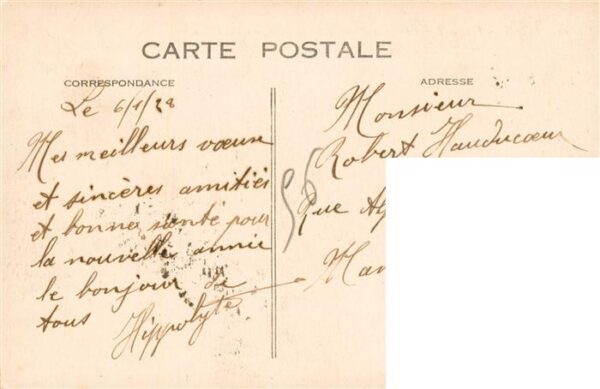 CARTE POSTALE
CORRESPONDANCE
Le 6/1/28
Mes meilleurs vœux
et sincères amitiés
et bonne santé pour
la nouvelle année
le bonjour de
tous
Hippolyte
ADRESSE
Monsieur
Robert Hauducoeur
Rue